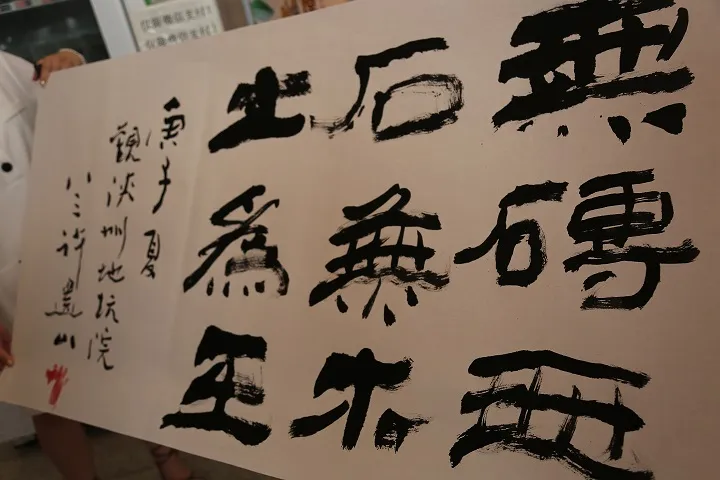 無磚瓦
石無木
土為王
庚子夏
觀陝州地坑院
八三許山